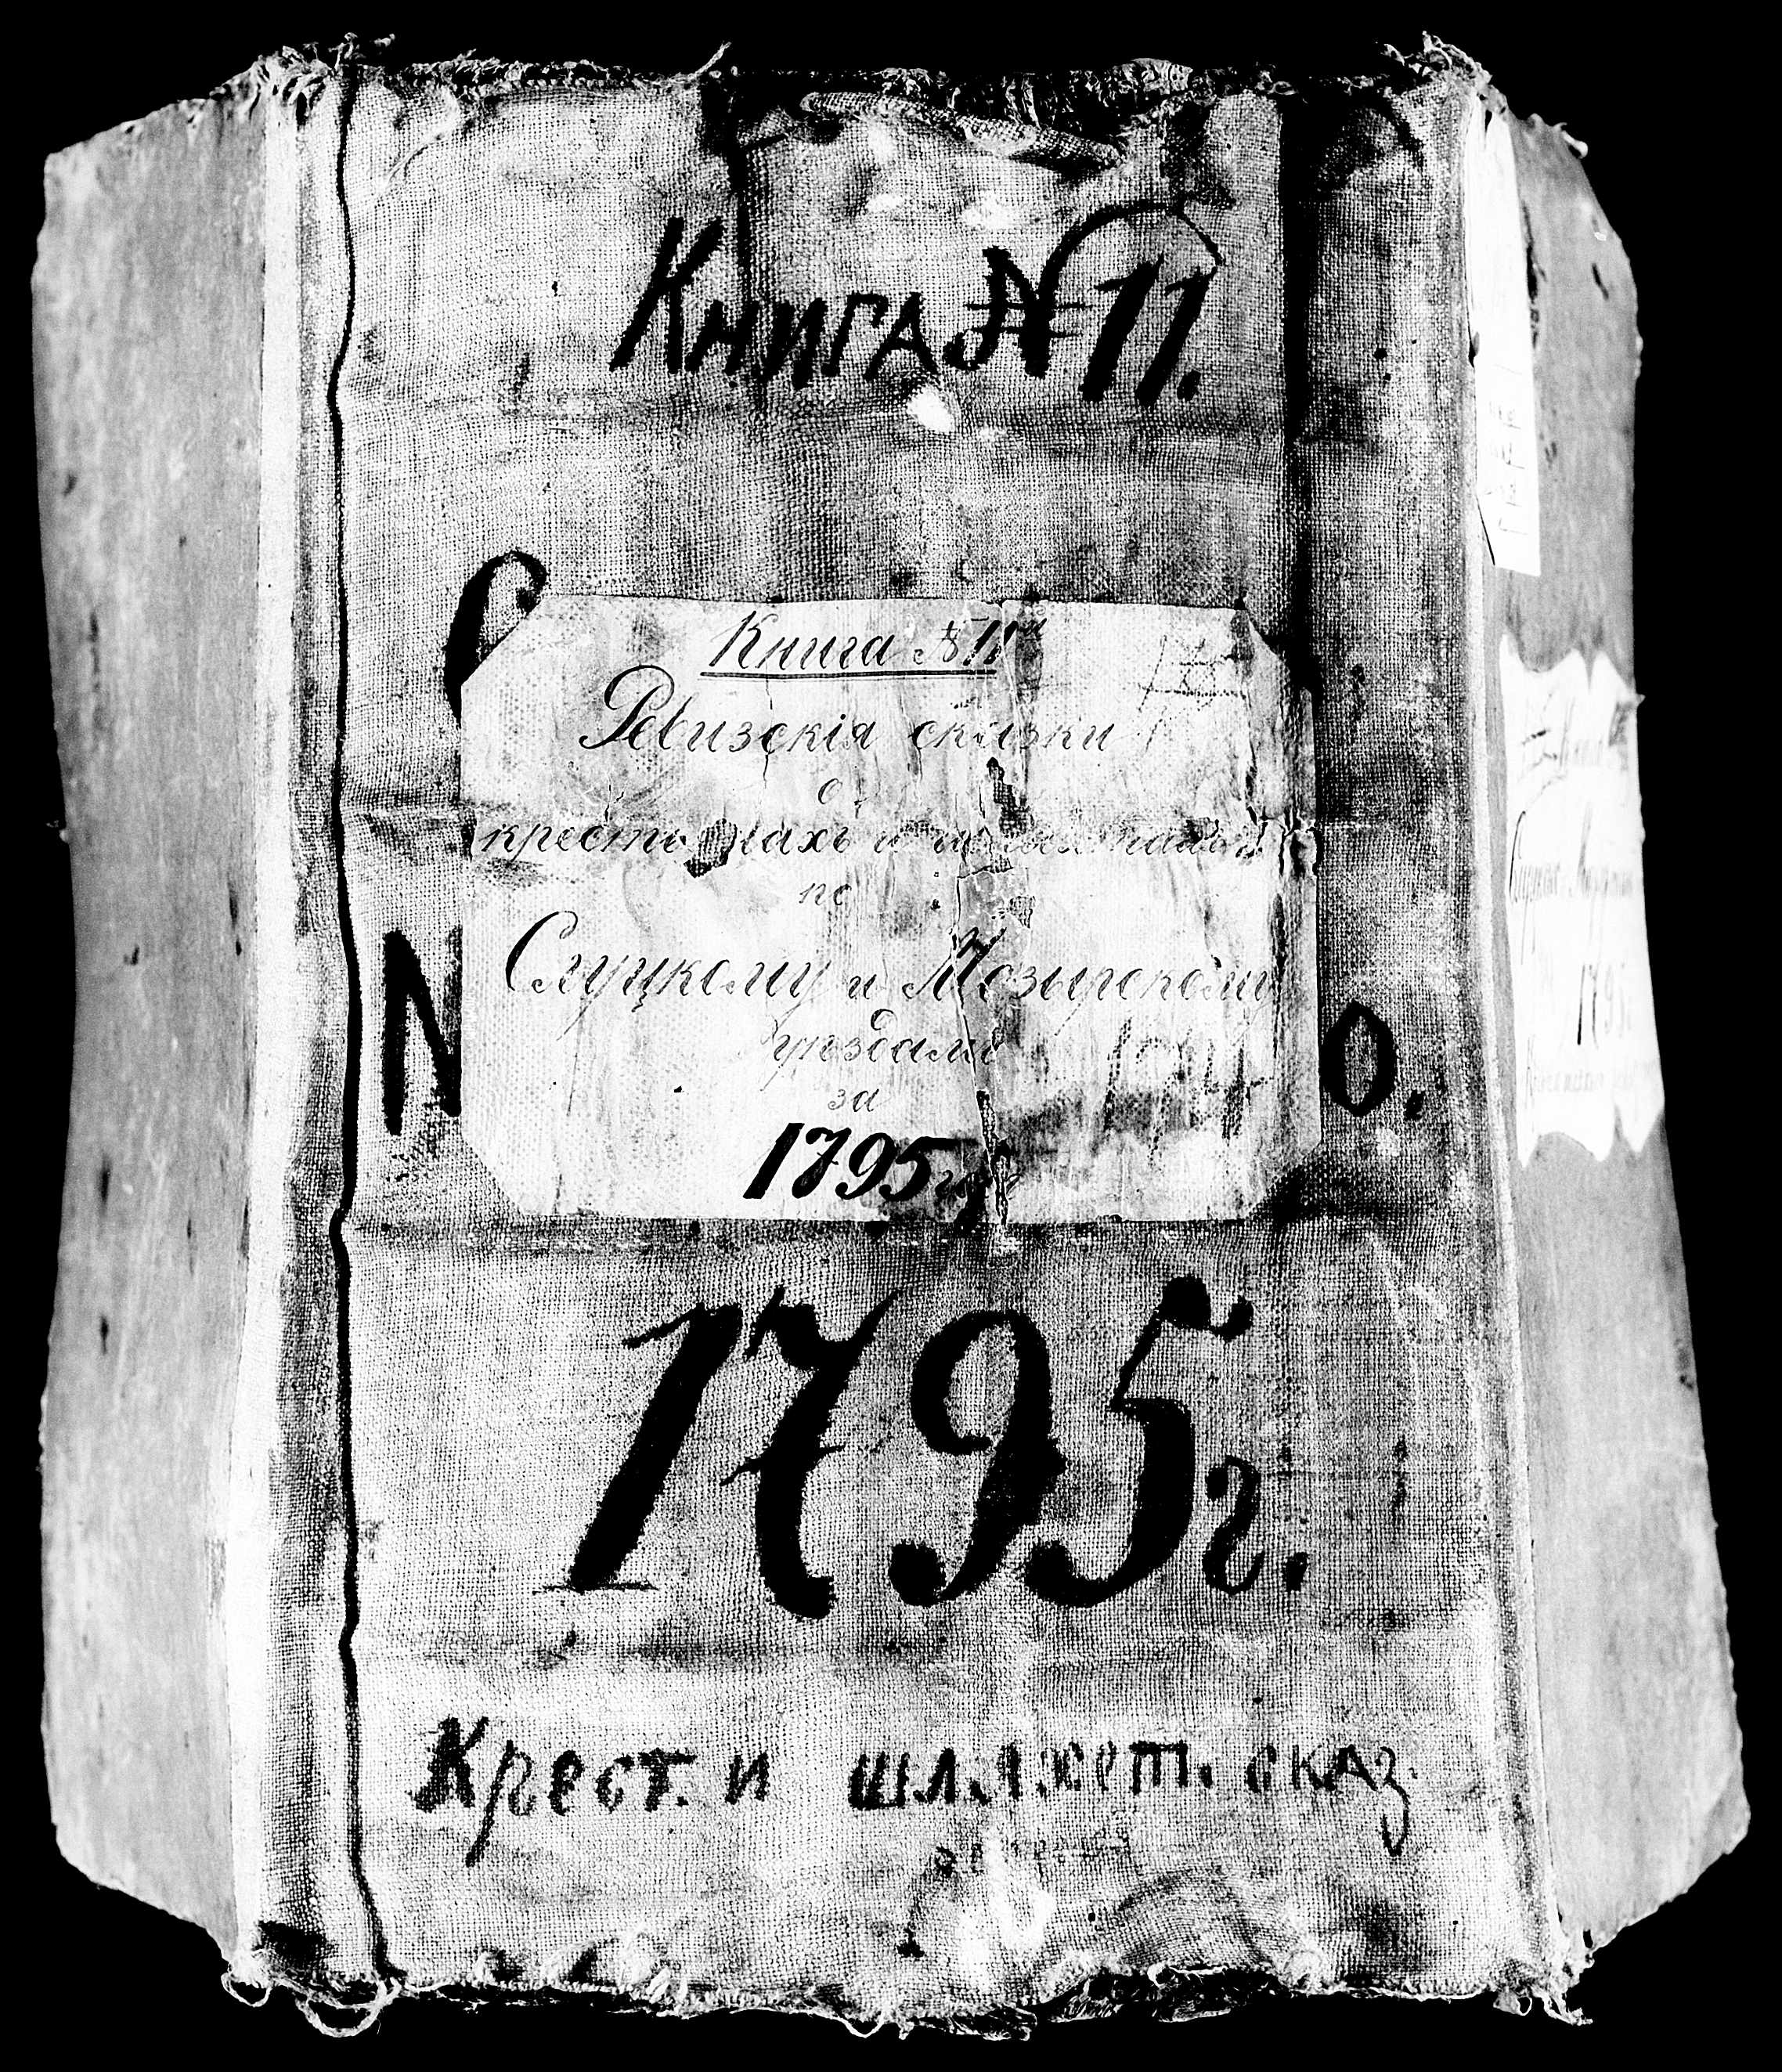 Книга № 11.
С
Книга № 11
Ревизскія сказки
о
крестьянахъ и
по
Слуцкому и Мозырскому
уѣздамъ
за
1795
М О.
1795 г.
Крест. и шляхет. сказ.